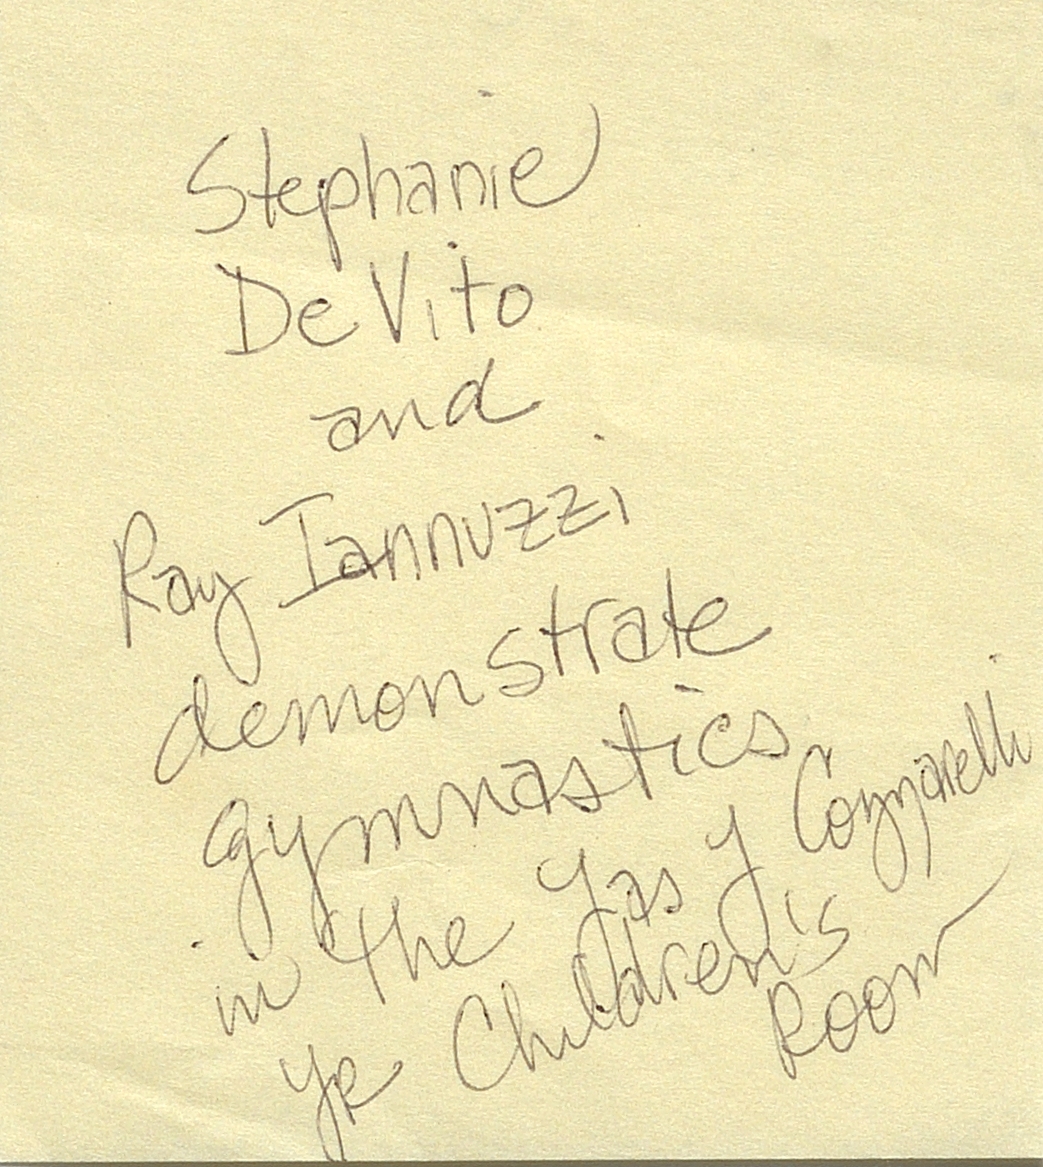 Stephanie
DeVito
and
Ray Iannuzzi
demonstrate
gymnastics
in the Jas J Cozzarelli
Jr Children's
Room